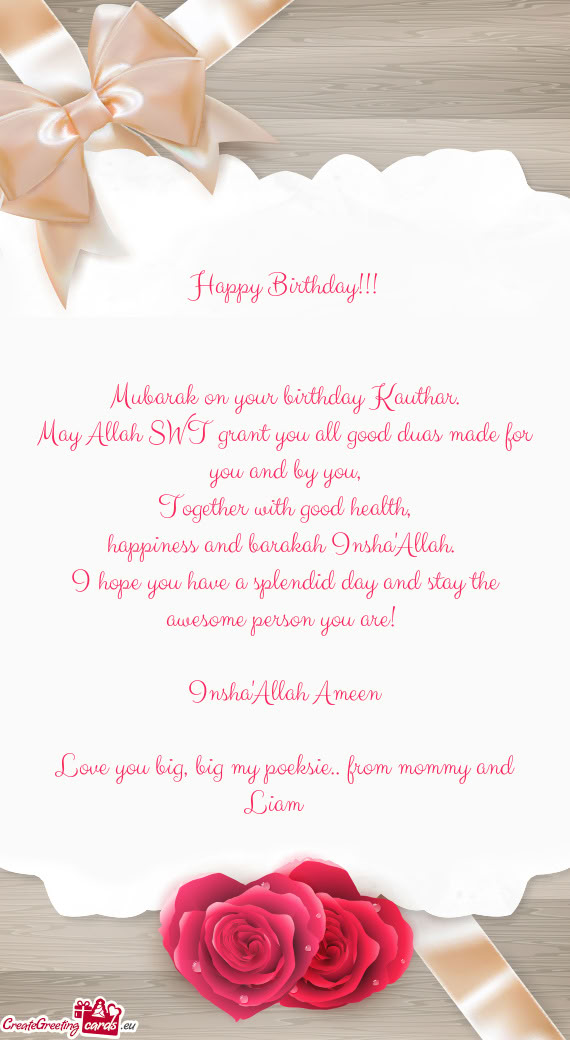 Happy Birthday!!!
Mubarak on your birthday Kauthar.
May Allah SWT grant you all good duas made for
you and by you,
Together with good health,
happiness and barakah Insha'Allah.
I hope you have a splendid day and stay the
awesome person you are!
Insha'Allah Ameen
Love you big, big my poeksie.. from mommy and
Liam
CreateGreeting cards .eu